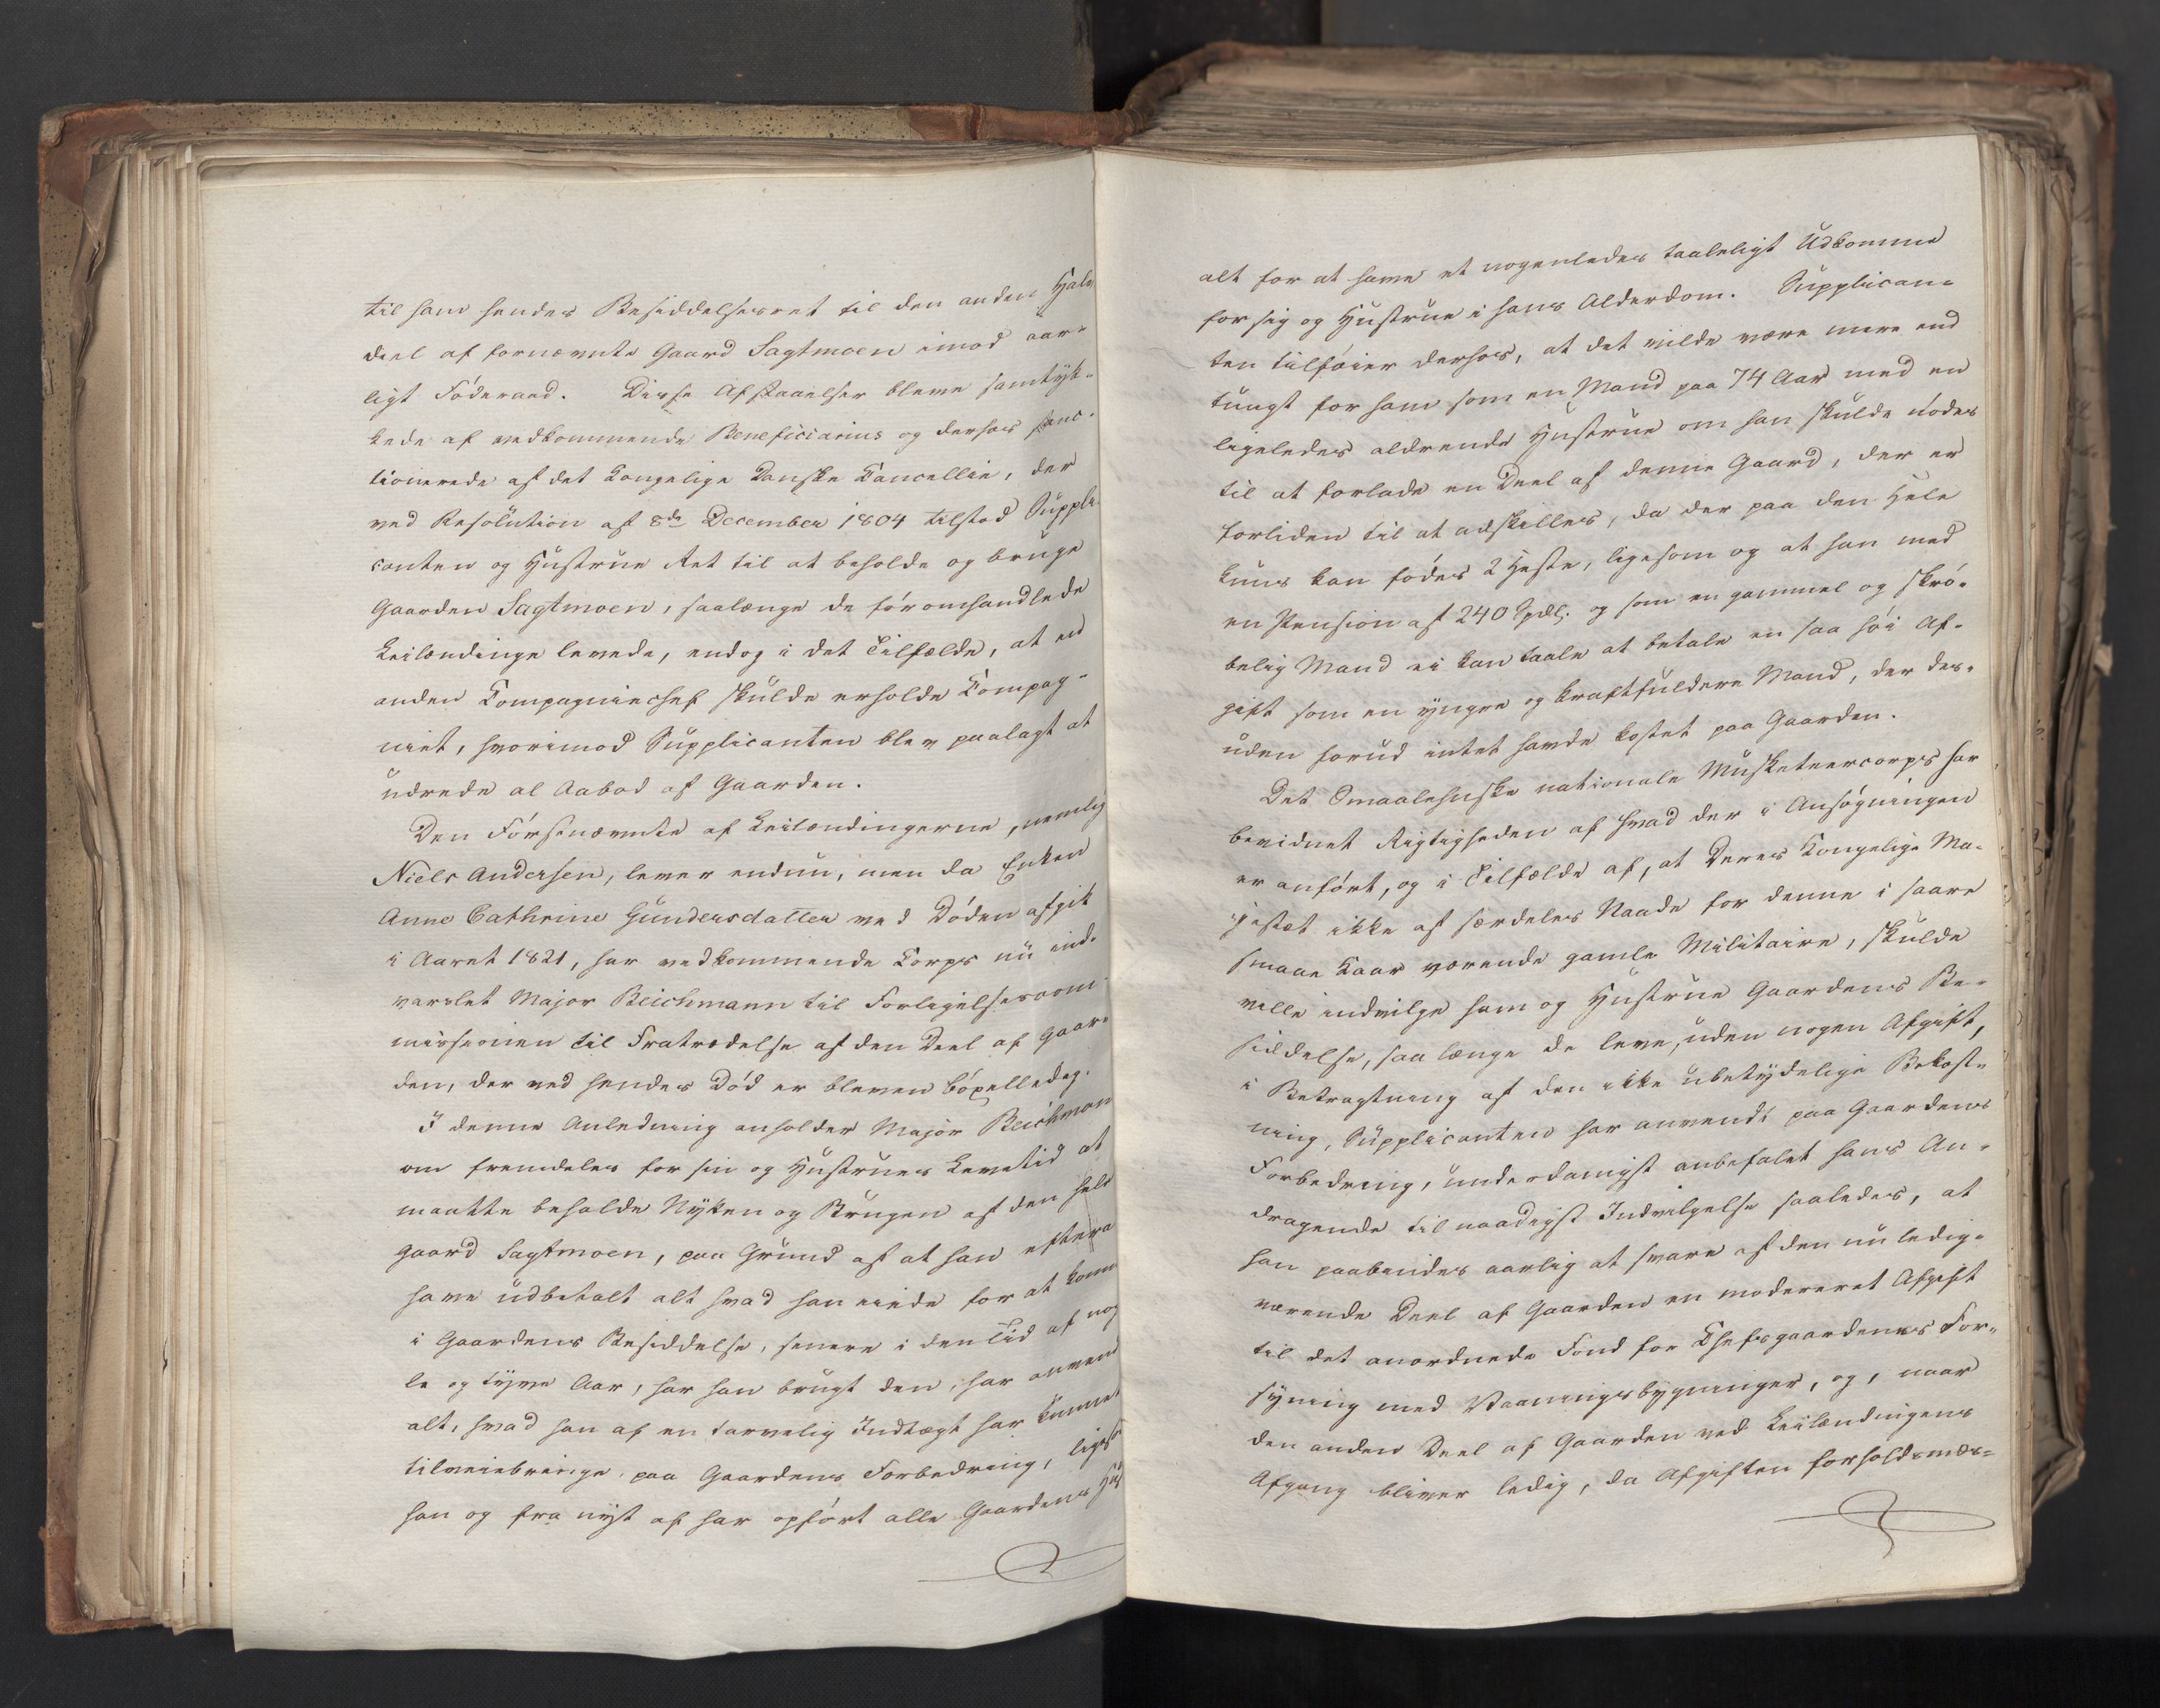 til ham hendes Besiddelsesret til den anden Halv
deel af fornævnte Gaard Sagtmoen imod aar-
ligt Föderaad. Disse Afstaaelser bleve samtyk-
kede af vedkommende Beneficiarius og derhos sanc-
tionerede af det Kongelige Danske Cancellie, der
ved Resolution af 8de December 1804 tilstod Suppli-
canten og Hustrue Ret til at beholde og bruge
Gaarden Sagtmoen, saalænge de föromhandlede
Leilændinge levede, endog i det Tilfælde, at en
anden Compagniechef skulde erholde Compag-
niet, hvorimod Supplicanten blev paalagt at
udrede al Aabod af Gaarden.
Den Förstnævnte af Leilændingerne, nemlig
Niels Andersen, lever endnu, men da Enken
Anne Cathrine Gundersdatter ved Döden afgik
i Aaret 1821, har vedkommende Corps nu ind-
varslet Major Beichmann til Forligelsescom-
missionen til Fratrædelse af den Deel af Gaar-
den, der ved hendes Död er bleven böxelledig.
I denne Anledning anholder Major Beichman
om fremdeles for sin og Hustrues Levetid at
maatte beholde Nytten og Brugen af den hele
Gaard Sagtmoen, paa Grund af at han efter at
have udbetalt alt hvad han eiede for at komme
i Gaardens Besiddelse, senere i den Tid af nog
le og tyve Aar, har han brugt den, har anvend
alt, hvad han af en tarvelig Indtægt har kunnet
tilveiebringe, paa Gaardens Forbedring, ligeso
han og fra nyt af har opfört alle Gaardens Hus
alt for at have et nogenledes taaleligt Udkomme
for sig og Hustrue i hans Alderdom. Supplican-
ten tilföier derhos, at det vilde være mere end
tungt for ham som en Mand paa 74 Aar med en
ligeledes aldrende Hustrue om han skulde nödes
til at forlade en Deel af denne Gaard, der er
forliden til at adskilles, da der paa den Hele
kuns kan födes 2 Heste, ligesom og at han med
en Pension af 240 Spdlr. og som en gammel og skrö-
belig Mand ei kan taale at betale en saa höi Af-
gift som en yngre og kraftfuldere Mand, der des-
uden forud intet havde kostet paa Gaarden.
Det Smaalehnske nationale Musketeercorps har
bevidnet Rigtigheden af hvad der i Ansögningen
er anfört, og i Tilfælde af, at Deres Kongelige Ma-
jestæt ikke af særdeles Naade for denne i saare
smaae Kaar værende gamle Militaire, skulde
ville indvilge ham og Hustrue Gaardens Be-
siddelse, saa længe de leve, uden nogen Afgift,
i Betragtning af den ikke ubetydelige Bekost-
ning, Supplicanten har anvendt paa Gaardens
Forbedring, underdanigst anbefalet hans An-
dragende til naadigst Indvilgelse saaledes, at
han paabindes aarlig at svare af den nu ledig-
værende Deel af Gaarden en modereret Afgift
til det anordnede Fond for Chefsgaardenes For-
syning med Vaaningsbygninger, og, naar
den anden Deel af Gaarden ved Leilændingens
Afgang bliver ledig, da Afgiften forholdsmæs-